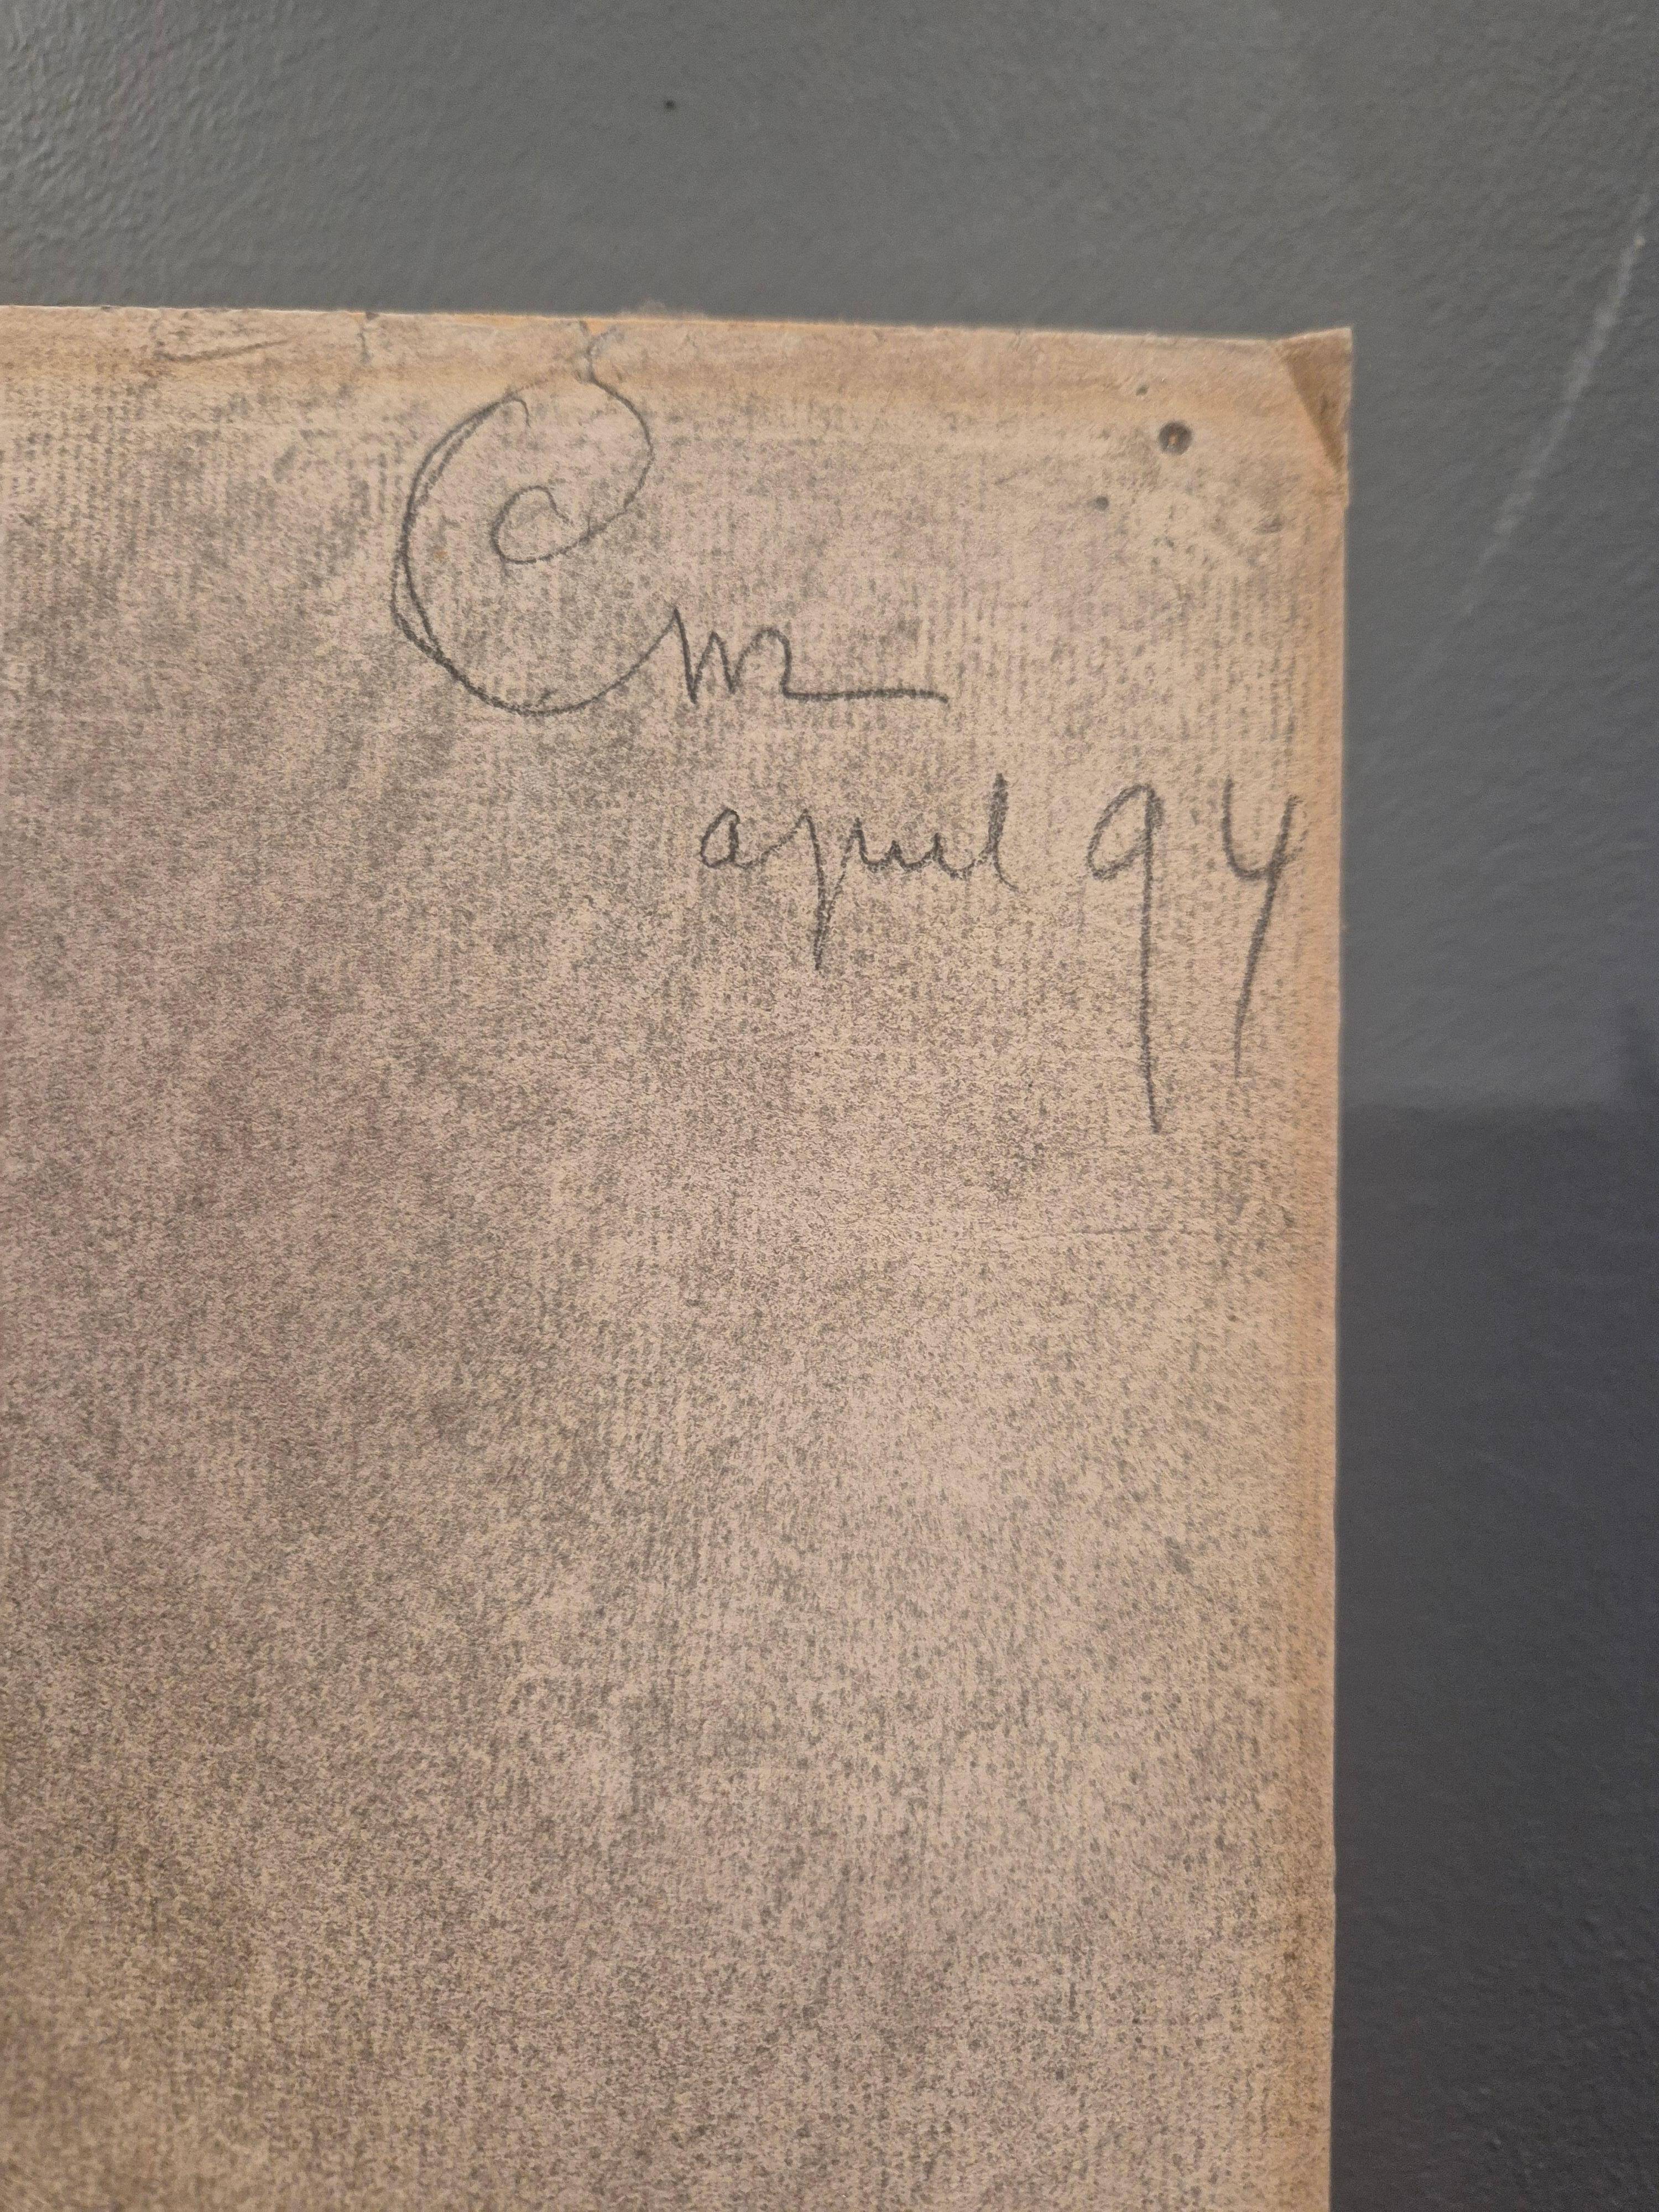 Em
april 94